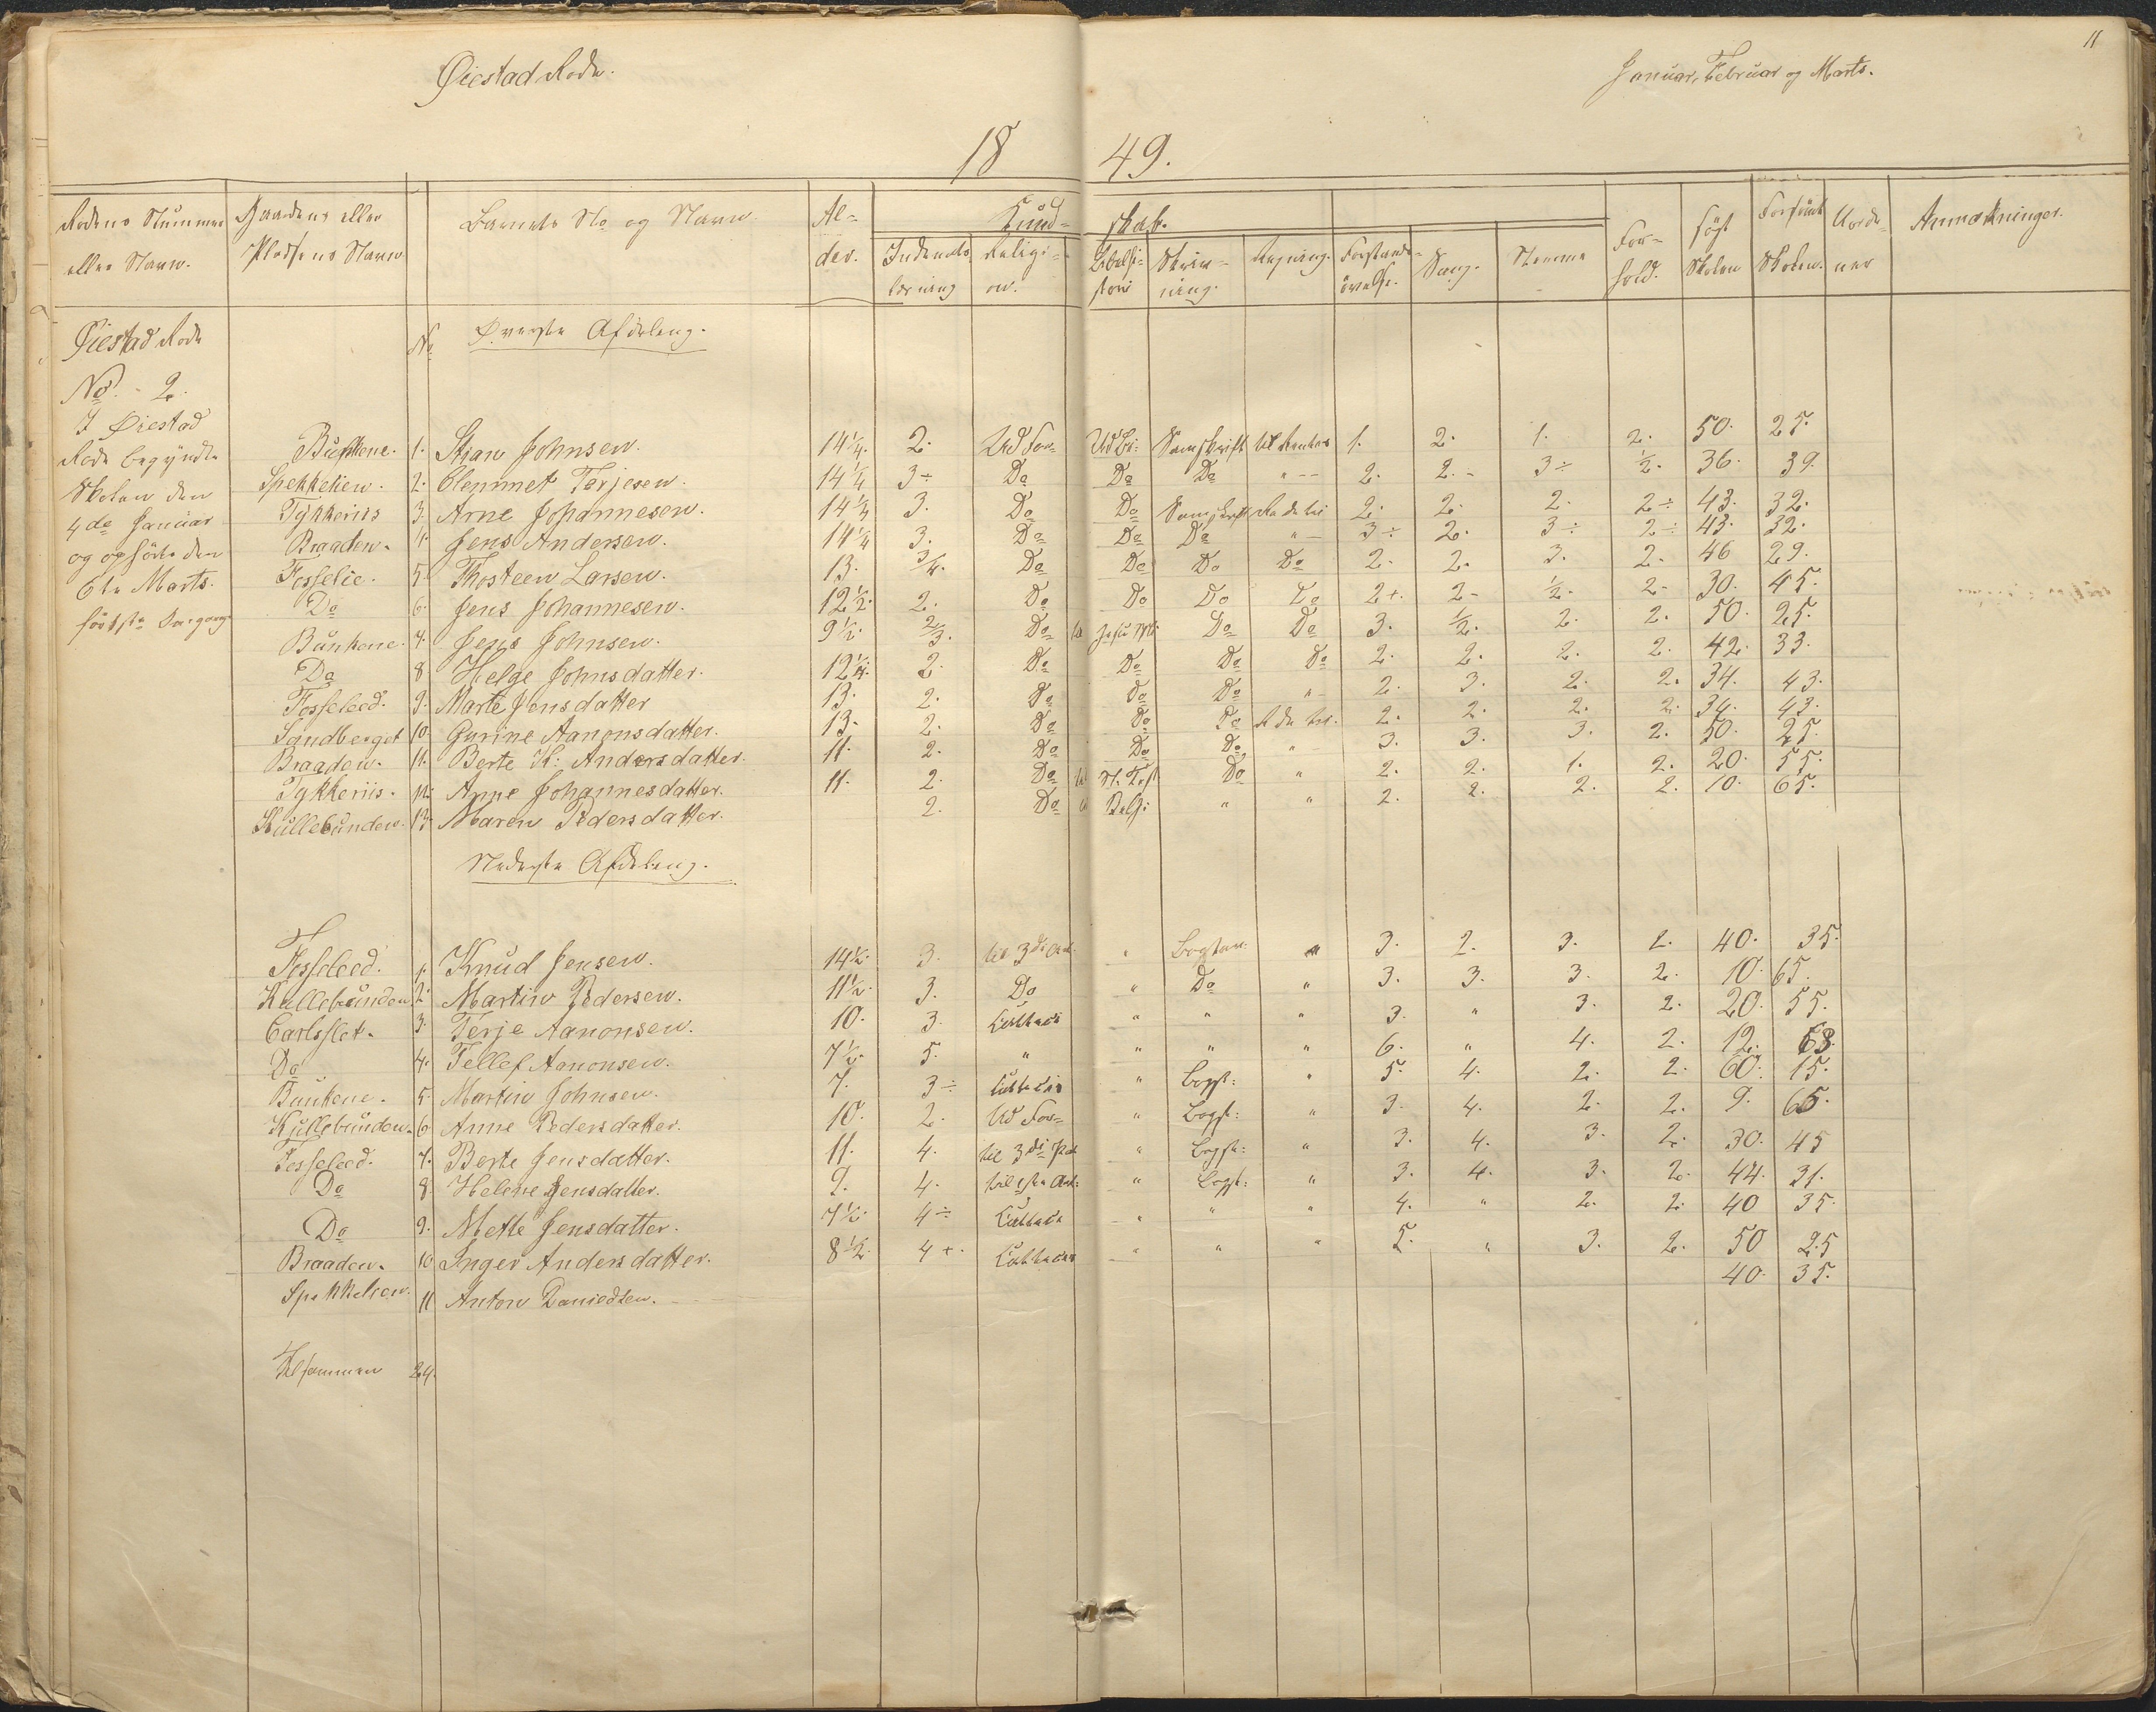 11
Øiestad Rode.
Januar, Februar og Marts.
18 49.
Rodens Nummer eller Navn.
Gaardens eller Pladsens Navn
Barnets No og Navn.
Alder.
Kundskab.
Indenadslæsning
Religion.
Bibelhistorie
Skrivning.
Regning.
Forstandsøvelse.
Sang.
Stemme
Forhold.
Søgt Skolen
Forsømt Skolen.
Anmærkninger.
Øiestad Rode
No. 2.
I Øiestad
Rode begyndte
Skolen den
4de Januar
og ophørte den
6te Marts.
første Omgang
No Øverste Afdeling.
Bunkene. 1. Stian Johnsen. 14 1/4. 2. Ud For- Ud Bi: Samskrift 1. 2. 1. 2. 50. 25.
Spekkelien. 2. Clemmet Terjesen. 14 1/4 3÷ Do Do Do " 2. 2. 3÷ 1/2. 36. 39.
Tykkeriis 3. Arne Johannesen. 14 1/4 3. Do Do Samskrift 2. 2. 2. 2÷ 43. 32.
Braaden. 4. Jens Andersen. 14 1/4 3. Do Do Do " 3÷ 2. 3÷ 2÷ 43. 32.
Fosselie. 5. Thosteen Larsen. 13. 3/4. Do Do Do Do 2. 2. 3. 2. 46 29.
Do 6. Jens Johannesen. 12 1/2. 2. Do Do Do Do 2+. 2- 1/2. 2- 30. 45.
Bunkene. 7. Jens Johnsen. 9 1/2. 2/3. Do Do Do 3. 1/2. 2. 2. 50. 25.
Do 8 Helge Johnsdatter. 12 1/4. 2. Do Do Do Do 2. 2. 2. 2. 42. 33.
Fosseleed. 9. Marte Jensdatter 13. 2. Do Do Do " 2. 3. 2. 2. 34. 43.
Sandberget 10. Gurine Aanonsdatter. 13. 2. Do Do Do 2. 2. 2. 2. 34. 43.
Braaden. 11. Berte K: Andersdatter. 11. 2. Do Do Do " 3. 3. 3. 2. 50. 25.
Tykkeriis. 12. Anne Johannesdatter. 11. 2. Do Do " 2. 2. 1. 2. 20. 55.
Kullebunden. 13. Maren Pedersdatter. 2. Do " " 2. 2. 2. 2. 10. 65.
Nederste Afdeling.
Fosseleed. 1. Knud Jensen. 14 1/2. 3. til 3die Art. " Bogstav. " 3. 2. 3. 2. 40. 35.
Kullebunden 2. Martin Pedersen. 11 1/2. 3. Do " Do " 3. 3. 3. 2. 10. 65.
Carlsslet. 3. Terje Aanonsen. 10. 3. " " " 3. " 3. 2. 20. 55.
Do 4. Tellef Aanonsen. 7 1/2. 5. " " " " 6. " 4. 2. 12. 63.
Bunkene. 5. Martin Johnsen. 7. 3÷ " Bogst: " 5. 4. 2. 2. 60. 15.
Kullebunden. 6. Anne Pedersdatter. 10. 2. Ud For- " Bogst: " 3. 4. 2. 2. 9. 65.
Fosseleed. 7. Berte Jensdatter. 11. 4. til 3die " Bogst: " 3. 4. 3. 2. 30. 45
Do 8 Helene Jensdatter. 9. 4. " Bogst: " 3. 4. 3. 2. 44. 31.
Do 9. Mette Jensdatter. 7 1/2. 4÷ " " " 4. " 2. 2. 40 35.
Braaden. 10 Inger Andersdatter. 8 1/2. 4+. " " " 5. " 3. 2. 50 25
Spekkelien. 11 Anton Danielsen. 40. 35.
Tilsammen 24.